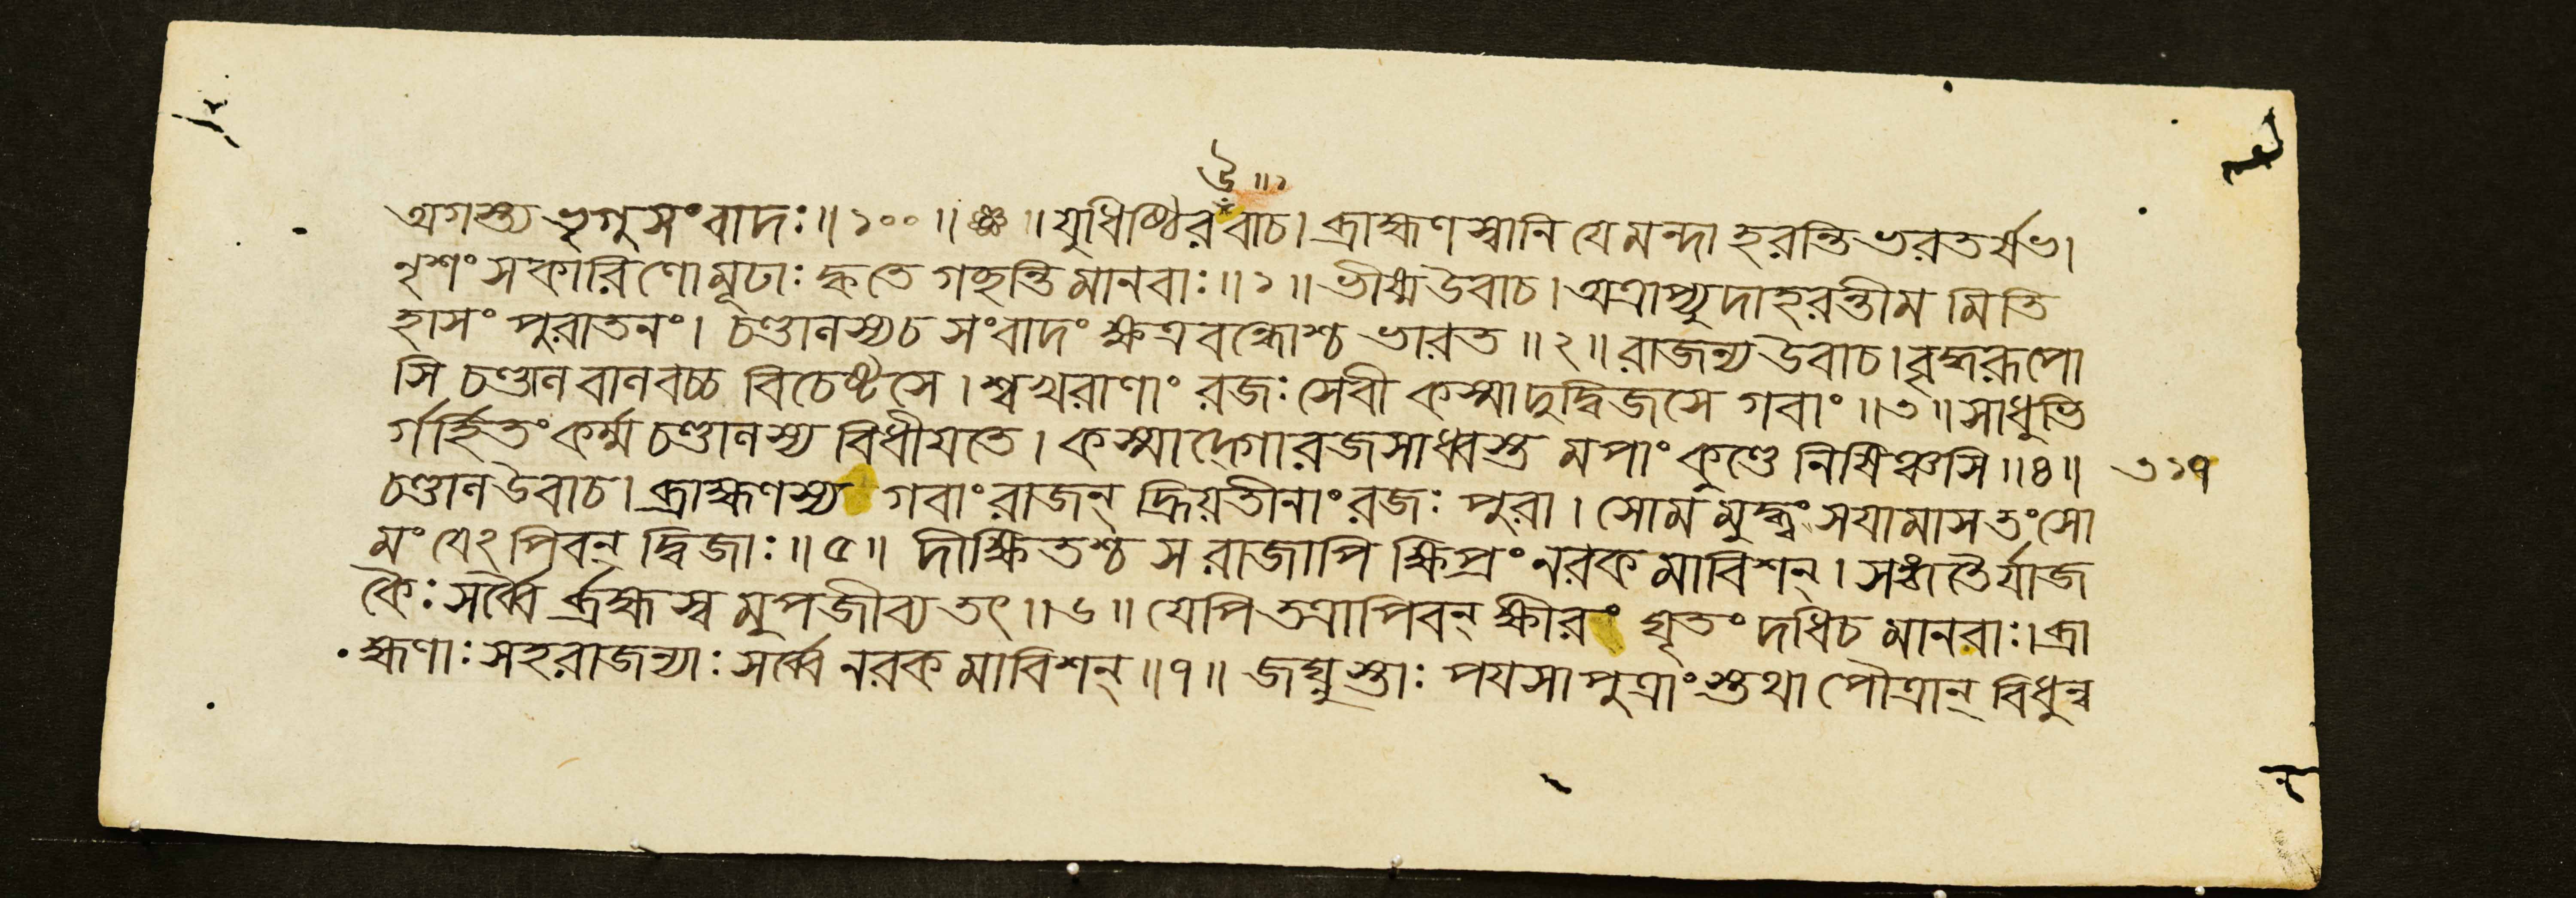 উ॥১
অগস্ত্য ভৃগুসংবাদঃ॥১০০॥ ॥যুধিষ্ঠিরবাচ। ব্রাহ্মণস্বানি যে মন্দা হরন্তি ভরতর্ষভ।
নৃশংসকারিণো মূঢাঃ ক্বতে গচ্ছন্তি মানবাঃ॥১॥ভীষ্মউবাচ। অত্রাপ্যুদাহরন্তীম মিতি
হাসং পুরাতনং। চণ্ডালস্যচ সংবাদং ক্ষত্রবন্ধোশ্চ ভারত॥২॥রাজন্যউবাচ।বৃদ্ধরূপো
সি চণ্ডাল বালবচ্চ বিচেষ্টসে। শ্বখরাণাং রজঃসেবী কস্মাদুদ্বিজসে গবাং॥৩॥সাধুভি
র্গর্হিতং কর্ম্ম চণ্ডালস্য বিধীযতে। কস্মাদ্গোরজসাধ্বস্ত মপাং কুণ্ডে নিষিঞ্চসি॥৪॥ ৩১৭
চণ্ডালউবাচ। ব্রাহ্মণস্য গবাং রাজন্ হ্রিয়তীনাং রজঃ পুরা। সোমমুদ্ধ্বংসযামাস তং সো
মং যেঽপিবন্ দ্বিজাঃ॥৫॥ দীক্ষিতশ্চ স রাজাপি ক্ষিপ্রং নরকমাবিশন্। সহ তৈর্যাজ
কৈঃ সর্ব্বৈর্ব্রহ্মস্ব মুপজীব্য তৎ॥৬॥ যেপি তত্রাপিবন্ ক্ষীরং ঘৃতং দধিচ মানবাঃ।ব্রা
হ্মণাঃ সহরাজন্যাঃ সর্ব্বে নরকমাবিশন্॥৭॥ জঘ্নুস্তাঃ পযসা পুত্রাংস্তথা পৌত্রান্ বিধুন্ব